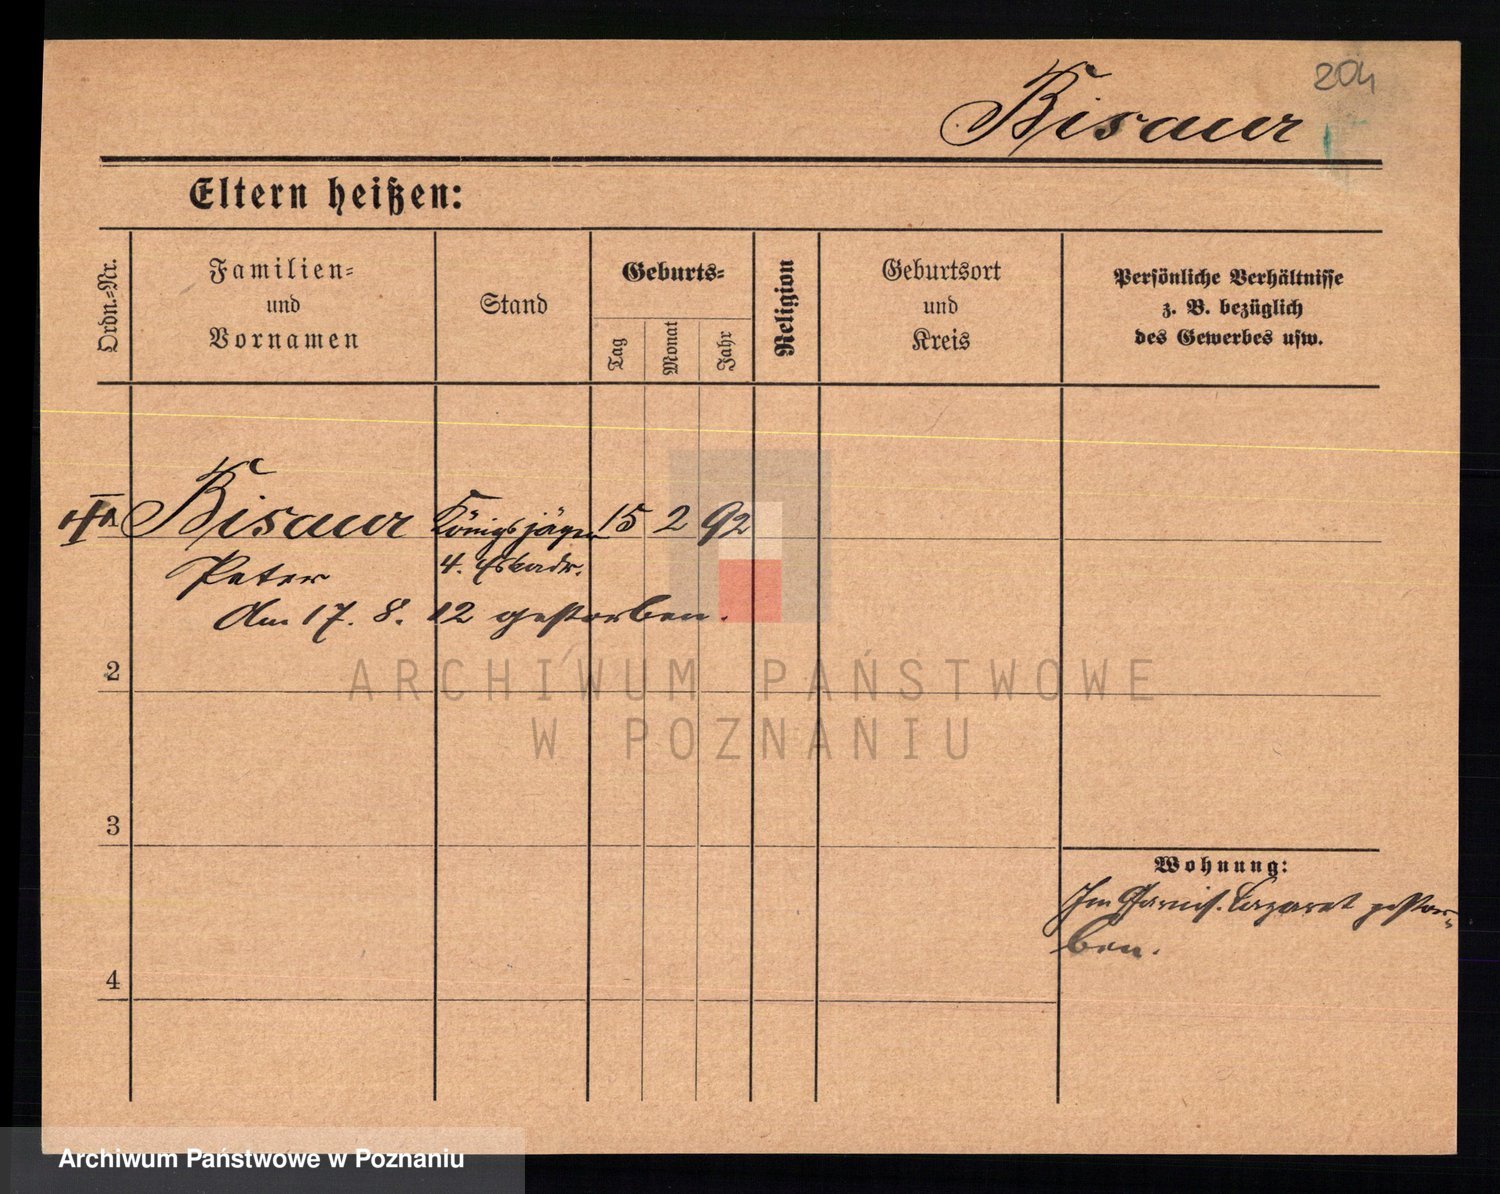 204
Bisaur
Eltern heißen:
Ordn.=Nr.
Familien=
und
Vornamen
Stand
Geburts=
Tag
Monat
Jahr
Religion
Geburtsort
und
Kreis
Persönliche Verhältnisse
z. B. bezüglich
des Gewerbes usw.
Bisaur Königsjäger 15 2 92
Peter 4. Eskadr.
Am 17. 8. 12 gestorben.
2
3
4
Wohnung:
Im Garnis. Lazaret gestor=
ben.
ARCHIWUM PAŃSTWOWE
W POZNANIU
Archiwum Państwowe w Poznaniu